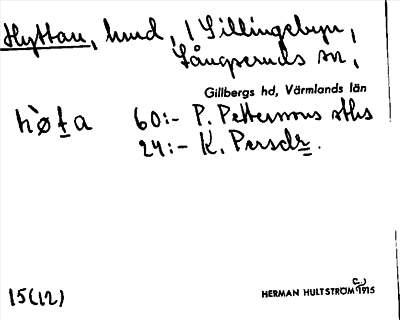 Hyttan, hmd, i Sillingebyn,
Långseruds sn,
Gillbergs hd, Värmlands län
hø̀ta 60:- P. Petterssons sths
24:- K. Persdr.
15(12)
HERMAN HULTSTRÖM 1915